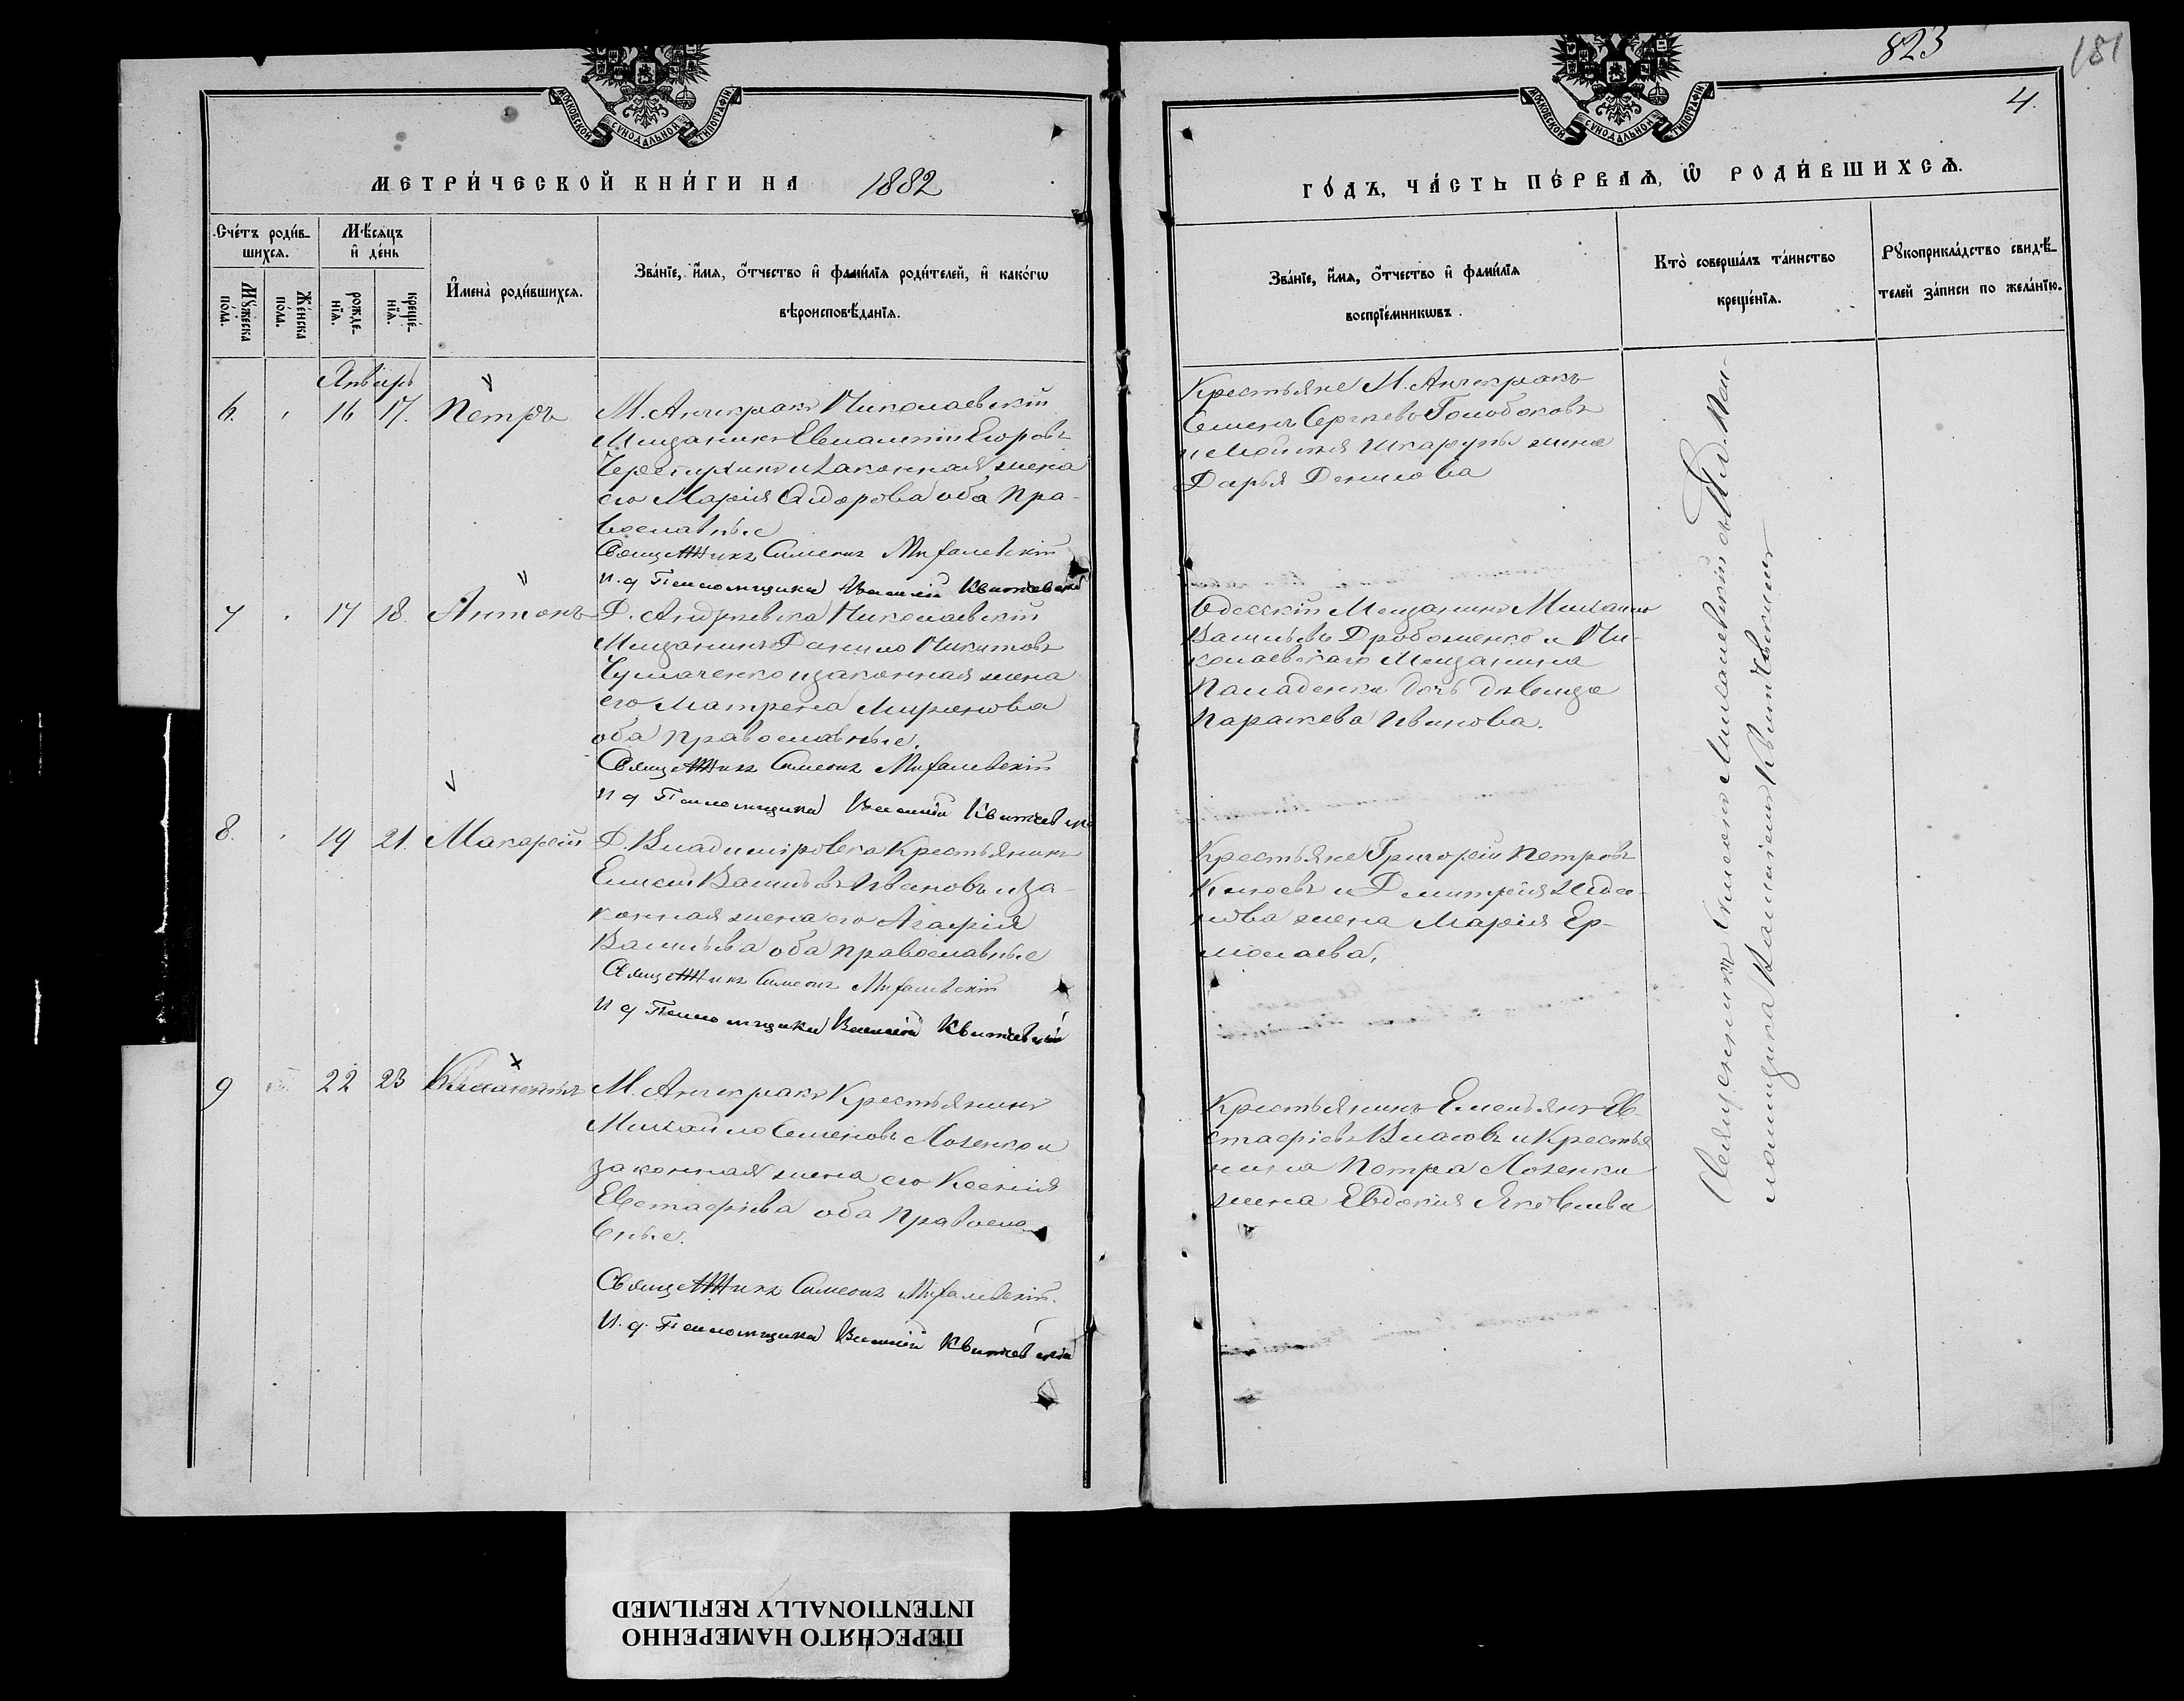 823
181
4.
МОСКОВСКОЙ СѴНОДАЛЬНОЙ ТИПОГРАФІИ
МОСКОВСКОЙ СѴНОДАЛЬНОЙ ТИПОГРАФІИ
МЕТРИ́ЧЕСКОЙ КНИ́ГИ НА 1882
ГО́ДЪ, ЧА́СТЬ ПЕ́РВАѦ, Ѡ҆ РОДИ́ВШИХСѦ.
Сче́тъ роди́в-
шихся.
Мѣ́сяцъ
и҆ де́нь
Мꙋ́жеска
по́ла.
Же́нска
по́ла.
рожде-
нїя.
креще́-
нїя.
И҆мена̀ роди́вшихся.
Зва́нїе, и҆́мя, ѻ҆́тчество и҆ фами́лїя роди́телей, и҆ како́гѡ
вѣроисповѣ́данїя.
Зва́нїе, и҆́мя, ѻ҆́тчество и҆ фами́лїя
воспрїе́мникѡвъ.
Кто̀ соверша́лъ та́инство
креще́нїя.
Рꙋкоприкла́дство свидѣ́-
телей за́писи по жела́нїю.
Январь
6. 16 17. Петръ
М. Анчекракъ Николаевскій
Мещанинъ Евлампій Егоровъ
и законная жена
его Марія Сидорова оба Пра-
вославные
Священникъ Симеонъ Михалевскій
И. д Псаломщика Василій Квитковскій
Крестьяне М. Анчекракъ
Семенъ Сергѣевъ Голобоковъ
и Мойсія Шкарупы жена
Дарья Данилова
7 17 18. Антонъ
Д. Андреевка Николаевскій
Мещанинъ Данило Никитовъ
Чумаченко и законная жена
его Матрена Миронова
оба православные.
Священникъ Симеонъ Михалевскій
И д Псаломщика Василій Квитковскій
Одесскій Мещанинъ Михаилъ
Васильевъ Дробоженко и Ни-
колаевскаго Мещанина
Паладенка дочь дѣвица
Параскева Иванова.
8. 19 21. Макарій
Д. Владиміровка Крестьянинъ
Елисей Васильевъ Ивановъ и за-
конная жена его Агафія
Васильева оба православные
Священникъ Симеонъ Михалевскій
И д Псаломщика Василій Квитковскій
Крестьяне Григорій Петровъ
и Димитрія Жда-
нова жена Марія Ер-
молаева.
9 22 23
М. Анчекракъ Крестьянинъ
Михаило Семеновъ Лозенко и
законная жена его Ксенія
Евстафіева оба Правосла-
вные.
Священникъ Симеонъ Михалевскій.
И. д. Псаломщика Василій Квитковскій
Крестьянинъ Емельянъ Ев-
стафіевъ Власовъ и Крестья
нина Петра Лозенки
жена Евдокія Яковлева
Священникъ Симеонъ Михалевскій съ И. д. Пса-
ломщика Василіемъ Квитковскимъ
ПЕРЕСНЯТО НАМЕРЕННО
INTENTIONALLY REFILMED